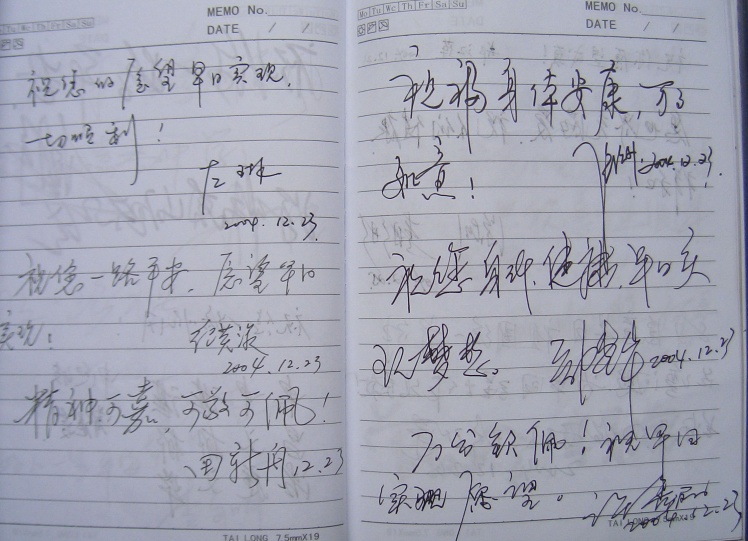 MEMO No.
DATE / /
祝您的愿望早日实现,
一切顺利!
2004.12.23.
祝您一路平安,愿望早日
实现!
2004.12.23
精神可嘉,可敬可佩!
田新舟 12.23
TAI LONG 7.5mmX19
Mo Tu We Th Fr Sa Su
MEMO No.
DATE / /
祝福身体安康,万事
如意!
2004.12.23.
祝您身体健康,早日实
现梦想。
2004.12.23
万分钦佩!祝早日
实现愿望。
2004.12.23